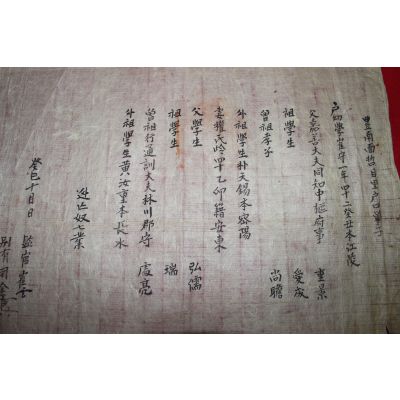 里南面哲目里戶口單子
戶幼學崔守一年四十二癸丑本江陵
父嘉善大夫同知中樞府事 重景
祖學生 愛成
曾祖孝子 尚瞻
外祖學生朴天錫本密陽
妻權氏齡四十乙卯籍安東
父學生 弘儒
祖學生 瑞
曾祖行通訓大夫林川郡守 虎亮
外祖學生黃汝重本長水
奴七業
癸巳十月日
監官崔
別有司金